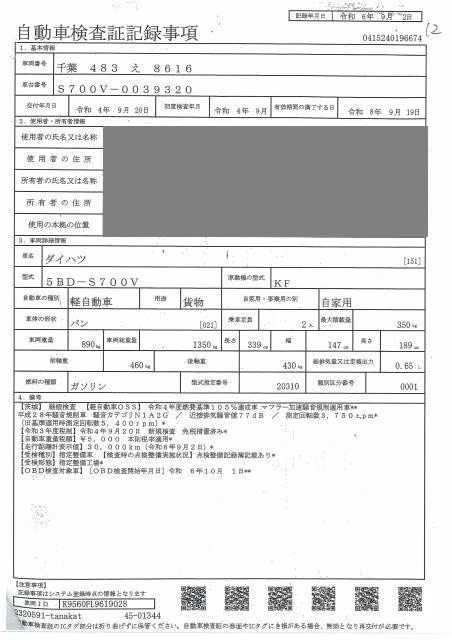 記録年月日 令和 6年 9月 2日
自動車検査証記録事項
0415240196674
12
1. 基本情報
車両番号 千葉 483 え 8616
車台番号 S700V-0039320
交付年月日 令和 4年 9月 20日 初度検査年月 令和 4年 9月 有効期間の満了する日 令和 8年 9月 19日
2. 使用者・所有者情報
使用者の氏名又は名称
使用者の住所
所有者の氏名又は名称
所有者の住所
使用の本拠の位置
3. 車両詳細情報
車名 ダイハツ [151]
型式 5BD-S700V 原動機の型式 KF
自動車の種別 軽自動車 用途 貨物 自家用・事業用の別 自家用
車体の形状 バン [021] 乗車定員 2人 最大積載量 350kg
車両重量 890kg 車両総重量 1350kg 長さ 339cm 幅 147cm 高さ 189cm
前軸重 460kg 後軸重 430kg 総排気量又は定格出力 0.65 L
燃料の種類 ガソリン 型式指定番号 20310 類別区分番号 0001
4. 備考
【茨城】 継続検査 【軽自動車OSS】 令和4年度燃費基準105%達成車 マフラー加速騒音規制適用車**
平成28年騒音規制車 騒音カテゴリN1A2G / 近接排気騒音値77dB / 測定回転数3,750rpm*
(旧基準適用時測定回転数5,400rpm)*
【令和3年度税制】令和4年9月20日 新規検査 免税措置済み*
【自動車重量税額】¥5,000 本則税率適用*
【走行距離計表示値】30,000km(令和6年9月2日)*
【受検種別】指定整備車 【検査時の点検整備実施状況】点検整備記録簿記載あり*
【受検形態】指定整備工場*
【OBD検査対象車】[OBD検査開始年月日]令和 6年10月 1日**
【注意事項】
記録事項はシステム登録時点の情報となります
車両ID K9560FL9619028
2320591-tanakat 45-01344
自動車検査証のICタグ部分は折り曲げずに保管ください。自動車検査証の券面やICタグにき損がある場合、無効となり再交付が必要です。